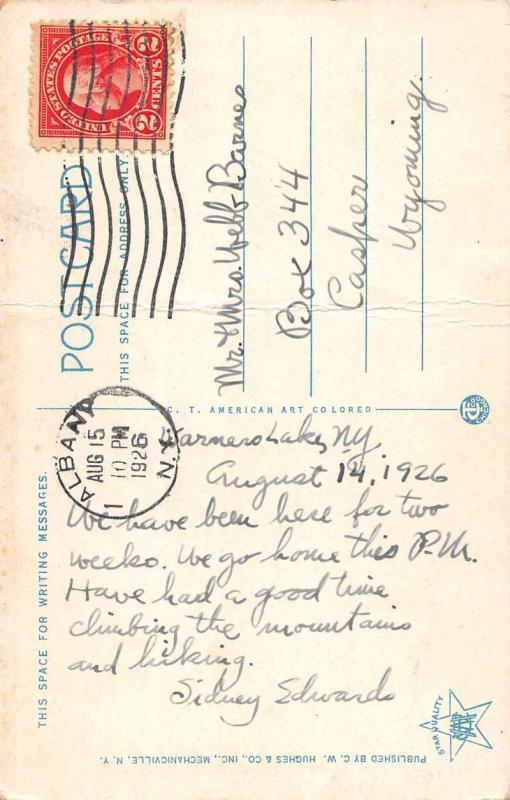 POST CARD
THIS SPACE FOR ADDRESS ONLY.
UNITED STATES POSTAGE
2 CENTS 2
Mr. & Mrs. Webb Barnes
Box 344
Casper
Wyoming.
C. T. AMERICAN ART COLORED
ALBANY
AUG 15
10 PM
1926
N.Y.
1
THIS SPACE FOR WRITING MESSAGES.
Warners Lake, NY
August 14, 1926
We have been here for two
weeks. We go home this P.M.
Have had a good time
climbing the mountains
and hiking.
Sidney Edwards
STAR QUALITY
PUBLISHED BY C. W. HUGHES & CO., INC., MECHANICVILLE, N. Y.